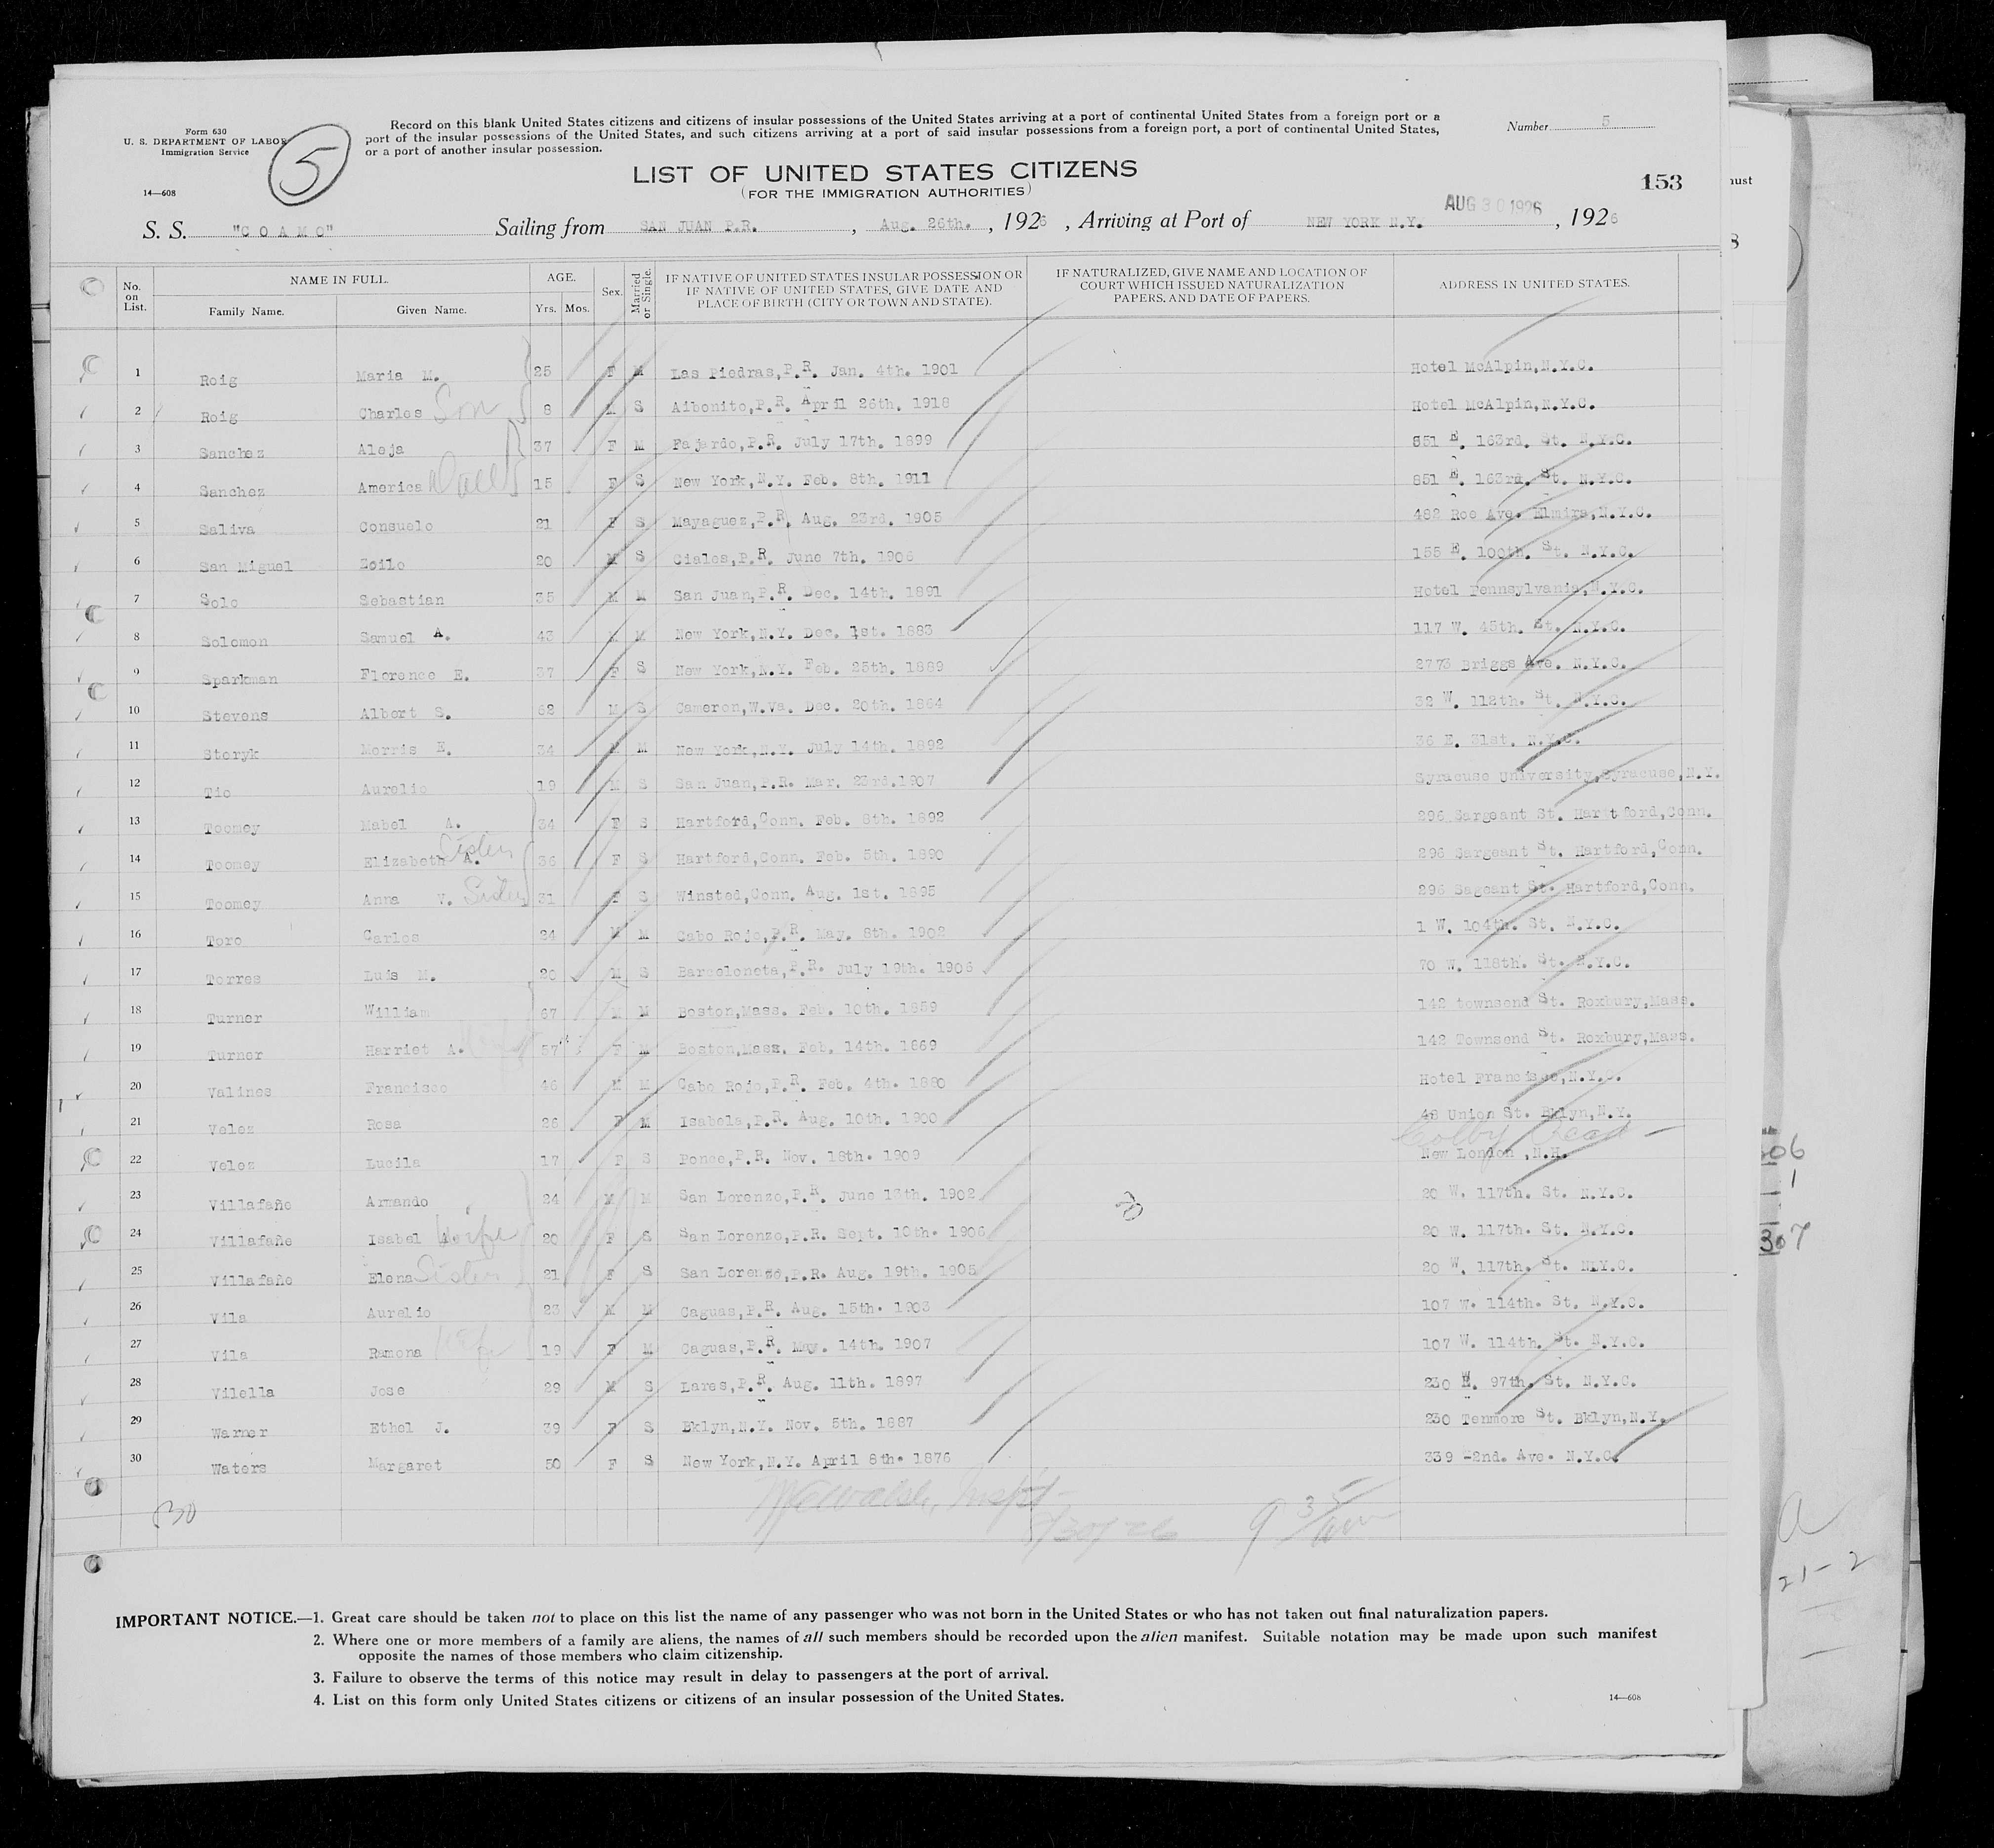 Form 630
U. S. DEPARTMENT OF LABOR
Immigration Service
14—608
5
Record on this blank United States citizens and citizens of insular possessions of the United States arriving at a port of continental United States from a foreign port or a
port of the insular possessions of the United States, and such citizens arriving at a port of said insular possessions from a foreign port, a port of continental United States,
or a port of another insular possession.
Number 5
LIST OF UNITED STATES CITIZENS
(FOR THE IMMIGRATION AUTHORITIES)
153
AUG 30 1926
S. S. "COAMO" Sailing from SAN JUAN P.R. , Aug. 26th. , 1926 , Arriving at Port of NEW YORK N.Y. , 1926
No. on List. NAME IN FULL. Family Name. Given Name. AGE. Yrs. Mos. Sex. Married or Single. IF NATIVE OF UNITED STATES INSULAR POSSESSION OR IF NATIVE OF UNITED STATES, GIVE DATE AND PLACE OF BIRTH (CITY OR TOWN AND STATE). IF NATURALIZED, GIVE NAME AND LOCATION OF COURT WHICH ISSUED NATURALIZATION PAPERS, AND DATE OF PAPERS. ADDRESS IN UNITED STATES.
1 Roig Maria M. 25 F M Las Piedras,P.R. Jan. 4th. 1901 Hotel McAlpin,N.Y.C.
2 Roig Charles Son 8 M S Aibonito,P.R. April 26th. 1918 Hotel McAlpin,N.Y.C.
3 Sanchez Aleja 37 F M Fajardo,P.R. July 17th. 1899 851 E. 163rd. St. N.Y.C.
4 Sanchez America 15 F S New York,N.Y. Feb. 8th. 1911 851 E. 163rd. St. N.Y.C.
5 Saliva Consuelo 21 F S Mayaguez,P.R. Aug. 23rd. 1905 482 Roe Ave. Elmira,N.Y.C.
6 San Miguel Zoilo 20 M S Ciales,P.R. June 7th. 1906 155 E. 100th. St. N.Y.C.
7 Solo Sebastian 35 M M San Juan,P.R. Dec. 14th. 1891 Hotel Pennsylvania,N.Y.C.
8 Solomon Samuel A. 43 M M New York,N.Y. Dec. 1st. 1883 117 W. 45th. St. N.Y.C.
9 Sparkman Florence E. 37 F S New York,N.Y. Feb. 25th. 1889 2773 Briggs Ave. N.Y.C.
10 Stevens Albert S. 62 M S Cameron,W.Va. Dec. 20th. 1864 32 W. 112th. St. N.Y.C.
11 Storyk Morris E. 34 M M New York,N.Y. July 14th. 1892 36 E. 31st. N.Y.C.
12 Tio Aurelio 19 M S San Juan,P.R. Mar. 23rd.1907 Syracuse University,Syracuse,N.Y.
13 Toomey Mabel A. 34 F S Hartford,Conn. Feb. 8th. 1892 296 Sargeant St. Harttford,Conn.
14 Toomey Elizabeth A. Sister 36 F S Hartford,Conn. Feb. 5th. 1890 296 Sargeant St. Hartford,Conn.
15 Toomey Anna V. Sister 31 F S Winsted,Conn. Aug. 1st. 1895 296 Sageant St. Hartford,Conn.
16 Toro Carlos 24 M M Cabo Rojo,P.R. May. 8th. 1902 1 W. 104th. St. N.Y.C.
17 Torres Luis M. 20 M S Barceloneta,P.R. July 19th. 1906 70 W. 118th. St. N.Y.C.
18 Turner William 67 M M Boston,Mass. Feb. 10th. 1859 142 townsend St. Roxbury,Mass.
19 Turner Harriet A. 57 F M Boston,Mass. Feb. 14th. 1869 142 Townsend St. Roxbury,Mass.
20 Valines Francisco 46 M M Cabo Rojo,P.R. Feb. 4th. 1880 Hotel Francisco,N.Y.C.
21 Velez Rosa 26 F M Isabela,P.R. Aug. 10th. 1900 48 Union St. Bklyn,N.Y.
Colby Acad —
22 Velez Lucila 17 F S Ponce,P.R. Nov. 18th. 1909 New London ,N.H.
23 Villafañe Armando 24 M M San Lorenzo,P.R. June 18th. 1902 20 W. 117th. St. N.Y.C.
24 Villafañe Isabel Wife 20 F S San Lorenzo,P.R. Sept. 10th. 1906 20 W. 117th. St. N.Y.C.
25 Villafañe Elena Sister 21 F S San Lorenzo,P.R. Aug. 19th. 1905 20 W. 117th. St. N.Y.C.
26 Vila Aurelio 23 M M Caguas,P.R. Aug. 15th. 1903 107 W. 114th. St. N.Y.C.
27 Vila Ramona Wife 19 F M Caguas,P.R. May. 14th. 1907 107 W. 114th. St. N.Y.C.
28 Vilella Jose 29 M S Lares,P.R. Aug. 11th. 1897 230 W. 97th. St. N.Y.C.
29 Warner Ethel J. 39 F S Bklyn,N.Y. Nov. 5th. 1887 230 Tenmore St. Bklyn,N.Y.
30 Waters Margaret 50 F S New York,N.Y. April 8th. 1876 339 -2nd. Ave. N.Y.C.
30
8/30/26
9 35 am
IMPORTANT NOTICE.—1. Great care should be taken not to place on this list the name of any passenger who was not born in the United States or who has not taken out final naturalization papers.
2. Where one or more members of a family are aliens, the names of all such members should be recorded upon the alien manifest. Suitable notation may be made upon such manifest
opposite the names of those members who claim citizenship.
3. Failure to observe the terms of this notice may result in delay to passengers at the port of arrival.
4. List on this form only United States citizens or citizens of an insular possession of the United States.
14—608
306
1
307
21-2